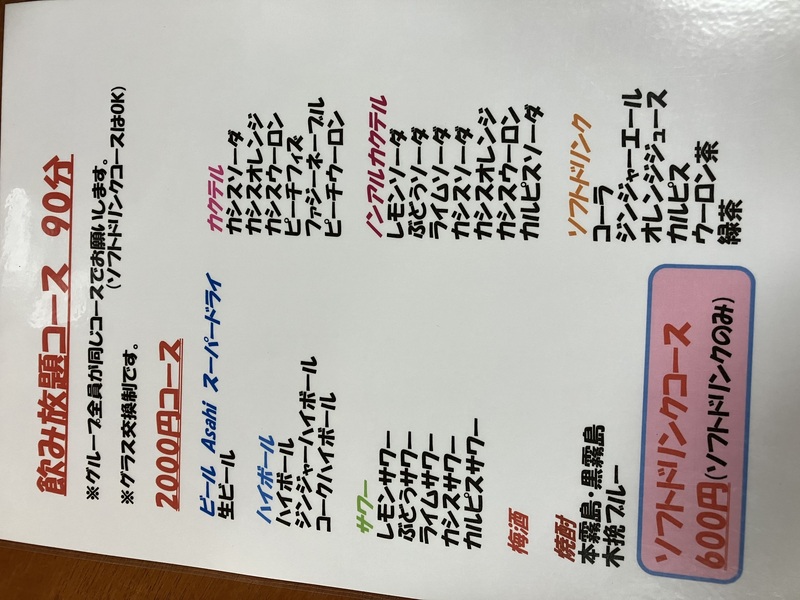 飲み放題コース 90分
※グループ全員が同じコースでお願いします。
(ソフトドリンクコースはOK)
※グラス交換制です。
2000円コース
ビール Asahi スーパードライ
生ビール
ハイボール
ハイボール
ジンジャーハイボール
コークハイボール
サワー
レモンサワー
ぶどうサワー
ライムサワー
カシスサワー
カルピスサワー
梅酒
焼酎
本霧島・黒霧島
木挽ブルー
カクテル
カシスソーダ
カシスオレンジ
カシスウーロン
ピーチフィズ
ファジーネーブル
ピーチウーロン
ノンアルカクテル
レモンソーダ
ぶどうソーダ
ライムソーダ
カシスソーダ
カシスオレンジ
カシスウーロン
カルピスソーダ
ソフトドリンク
コーラ
ジンジャーエール
オレンジジュース
カルピス
ウーロン茶
緑茶
ソフトドリンクコース
600円(ソフトドリンクのみ)